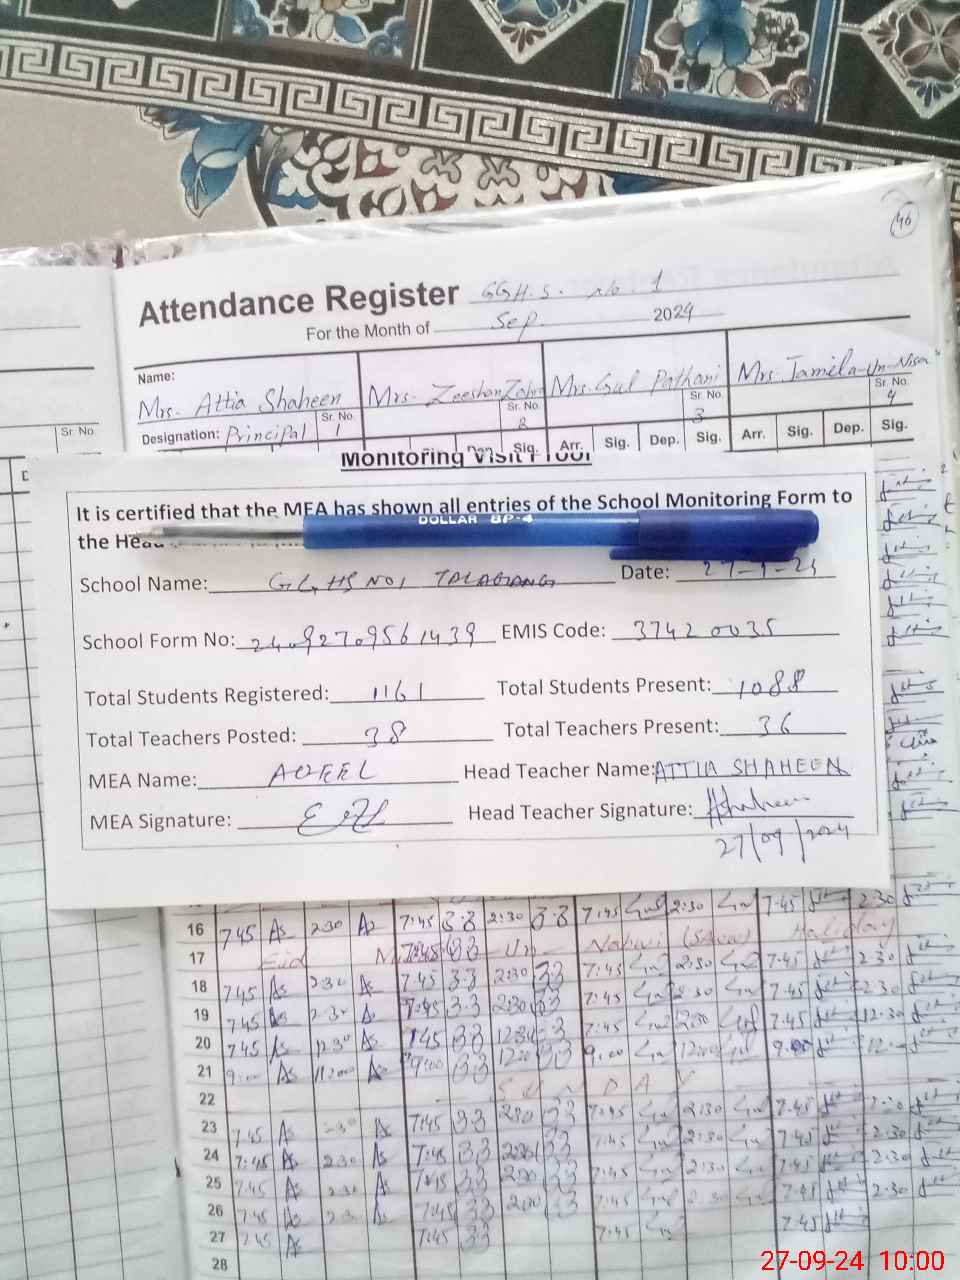 46
Attendance Register GGH.S. No. 1
For the Month of Sep. 2024
Name:
Mrs. Attia Shaheen Mrs. Zeeshan Zahra Mrs. Gul Pathani Mrs. Jamila-Un-Nisa
Sr. No. Sr. No. Sr. No. Sr. No. Sr. No.
Designation: Principal 1 2 3 4
Sig. Arr. Sig. Dep. Sig. Arr. Sig. Dep. Sig.
Monitoring Visit Proof
It is certified that the MEA has shown all entries of the School Monitoring Form to
the Head
DOLLAR BP-4
School Name: GGHS NO1 TALAGANG Date: 27-9-24
School Form No: 24092709561439 EMIS Code: 37420035
Total Students Registered: 1161 Total Students Present: 1088
Total Teachers Posted: 38 Total Teachers Present: 36
MEA Name: AQEEL Head Teacher Name: ATTIA SHAHEEN
MEA Signature: Head Teacher Signature: AShaheen
27/09/2024
16 7:45 As 2:30 As 7:45 33 2:30 33 7:45 2:30 7:45 2:30
17 Eid Un Nabvi (SAW) Holiday
18 7:45 As 2:30 As 7:45 33 2:30 33 7:45 2:30 7:45 2:30
19 7:45 As 2:30 As 7:45 33 2:30 33 7:45 2:30 7:45 2:30
20 7:45 As 12:30 As 7:45 33 12:30 33 7:45 7:45 12:30
21 9:00 As As 9:00 33 33 9:00 9:00
22 SUNDAY
23 7:45 As As 7:45 33 2:30 33 7:45 2:30 7:45
24 7:45 As 2:30 As 7:45 33 2:30 33 7:45 2:30 7:45 2:30
25 7:45 As 2:30 As 7:45 33 2:30 33 7:45 2:30 7:45 2:30
26 7:45 As 2:30 As 7:45 33 2:30 33 7:45 2:30 7:45 2:30
27 7:45 As 7:45 33 7:45 7:45
28
27-09-24 10:00